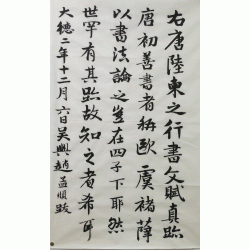 右唐陸東之行書文賦真跡
唐初善書者稱歐虞褚薛
以書法論之豈在四子下耶然
世罕有其跡故知之者希耳
大德二年十二月六日吴興趙孟頫跋